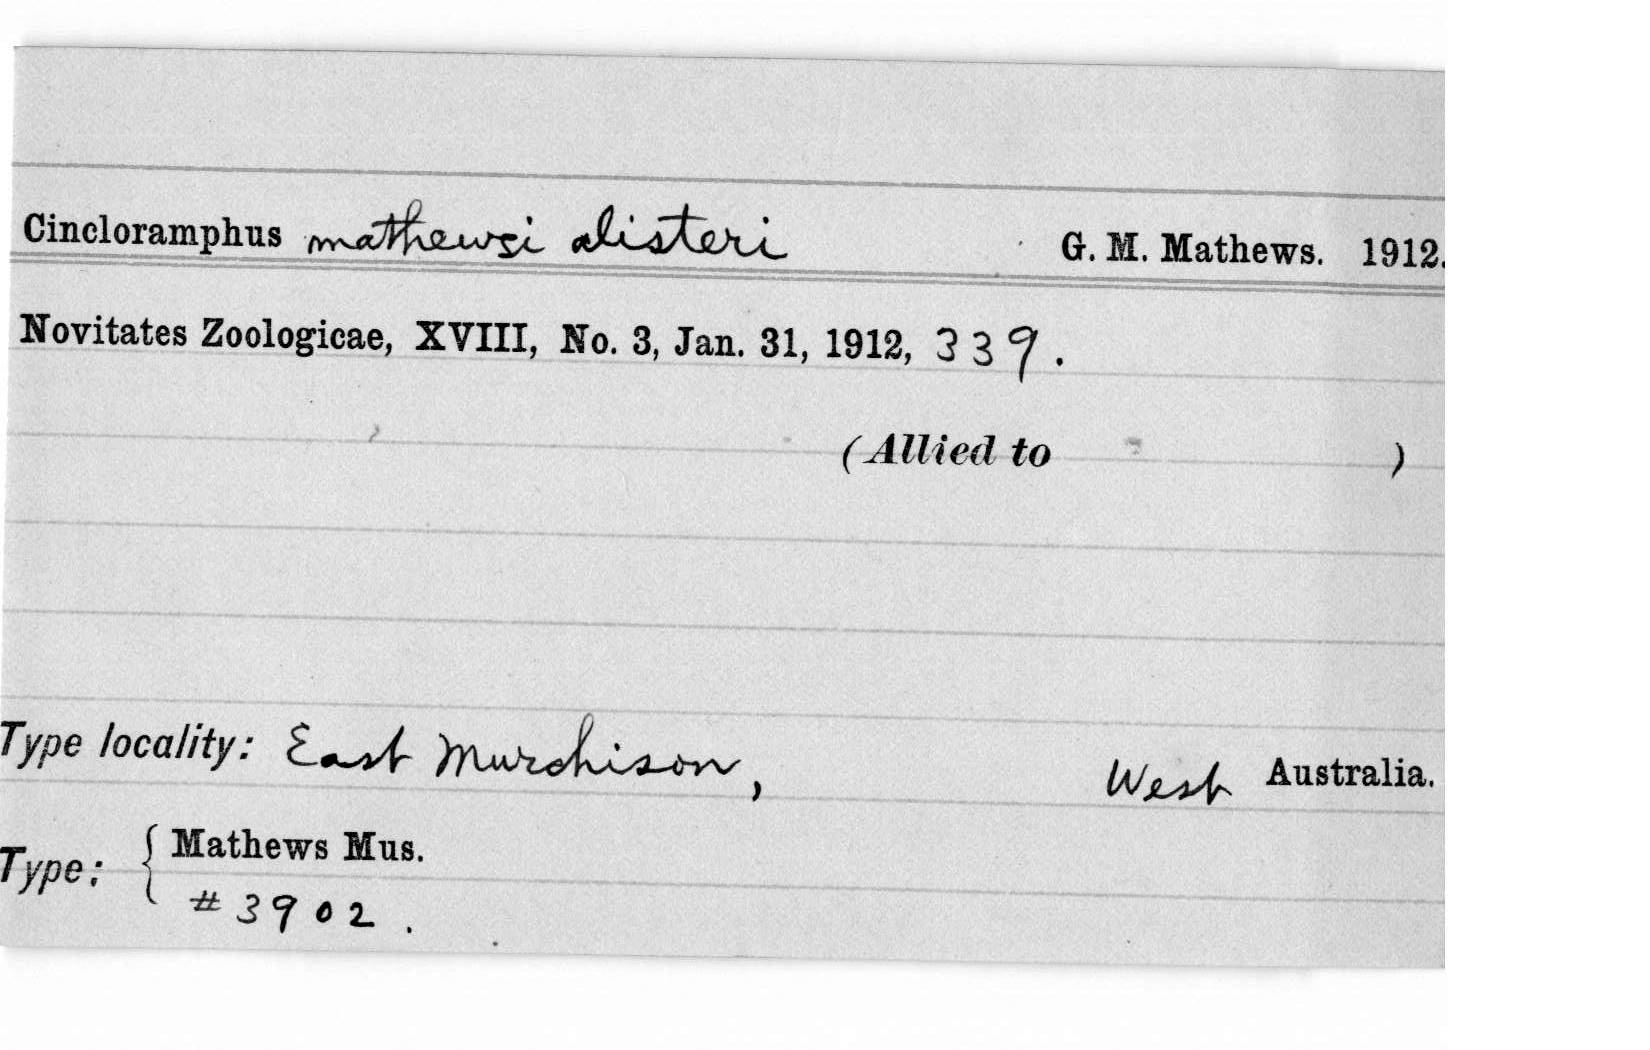 Cincloramphus mathewsi alisteri G. M. Mathews. 1912.
Novitates Zoologicae, XVIII, No. 3, Jan. 31, 1912, 339.
(Allied to )
Type locality: East Murchison, West Australia.
Type: { Mathews Mus.
# 3902.